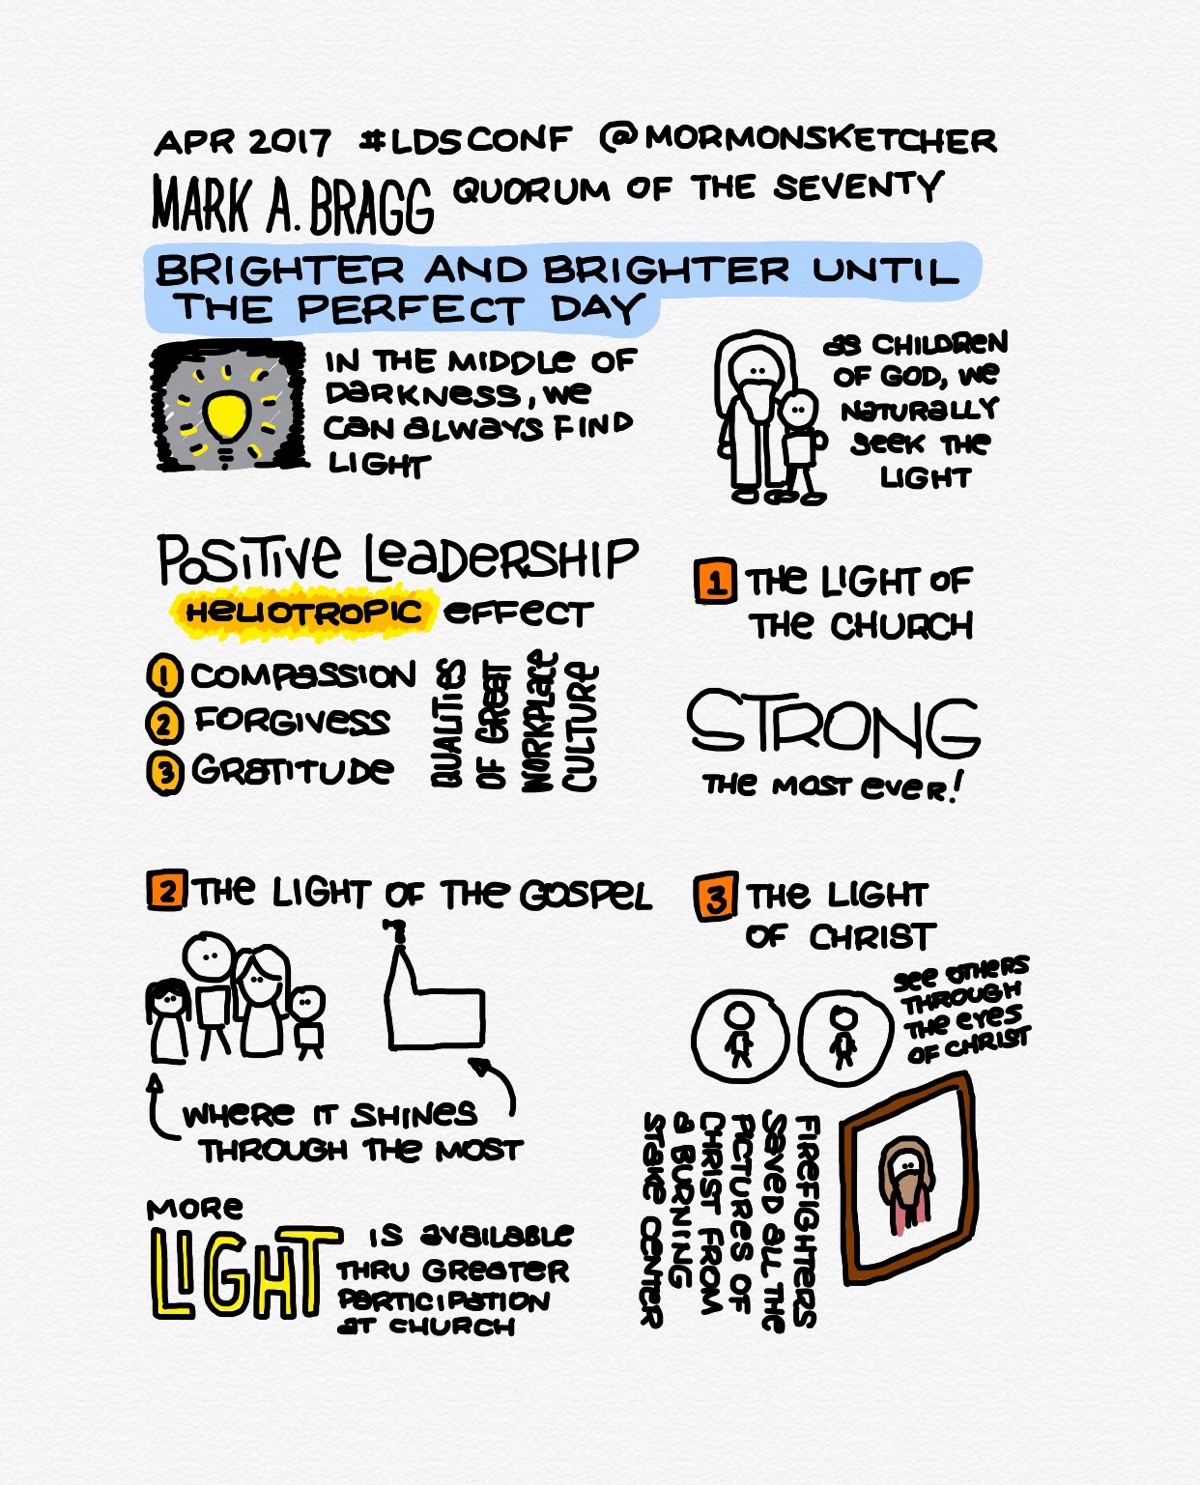 APR 2017 #LDSCONF @MORMONSKETCHER
MARK A. BRAGG QUORUM OF THE SEVENTY
BRIGHTER AND BRIGHTER UNTIL
THE PERFECT DAY
IN THE MIDDLE OF
DARKNESS, WE
CAN ALWAYS FIND
LIGHT
AS CHILDREN
OF GOD, WE
NATURALLY
SEEK THE
LIGHT
POSITIVE LEADERSHIP
HELIOTROPIC EFFECT
1 COMPASSION
2 FORGIVESS
3 GRATITUDE
QUALITIES
OF GREAT
WORKPLACE
CULTURE
1 THE LIGHT OF
THE CHURCH
STRONG
THE MOST EVER!
2 THE LIGHT OF THE GOSPEL
WHERE IT SHINES
THROUGH THE MOST
MORE
LIGHT IS AVAILABLE
THRU GREATER
PARTICIPATION
AT CHURCH
3 THE LIGHT
OF CHRIST
SEE OTHERS
THROUGH
THE EYES
OF CHRIST
FIREFIGHTERS
SAVED ALL THE
PICTURES OF
CHRIST FROM
A BURNING
STAKE CENTER